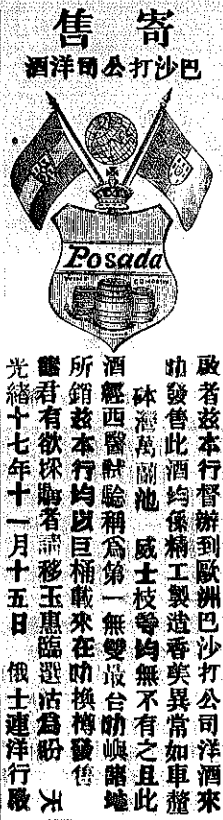 寄售
巴沙打公司洋酒
Posada
COMPANY
啟者茲本行督辦到歐洲巴沙打公司洋酒來
叻發售此酒均係精工製造香美異常如車釐
砵灣萬蘭池 威士枝等均無不有之且此
酒經西醫試驗稱為第一無雙最合叻嶼諸埠
所銷茲本行均以巨桶載來在叻換樽發售
君有欲採購者請移玉惠臨選沽為盼 天
光緒十七年十一月十五日 俄士連洋行啟